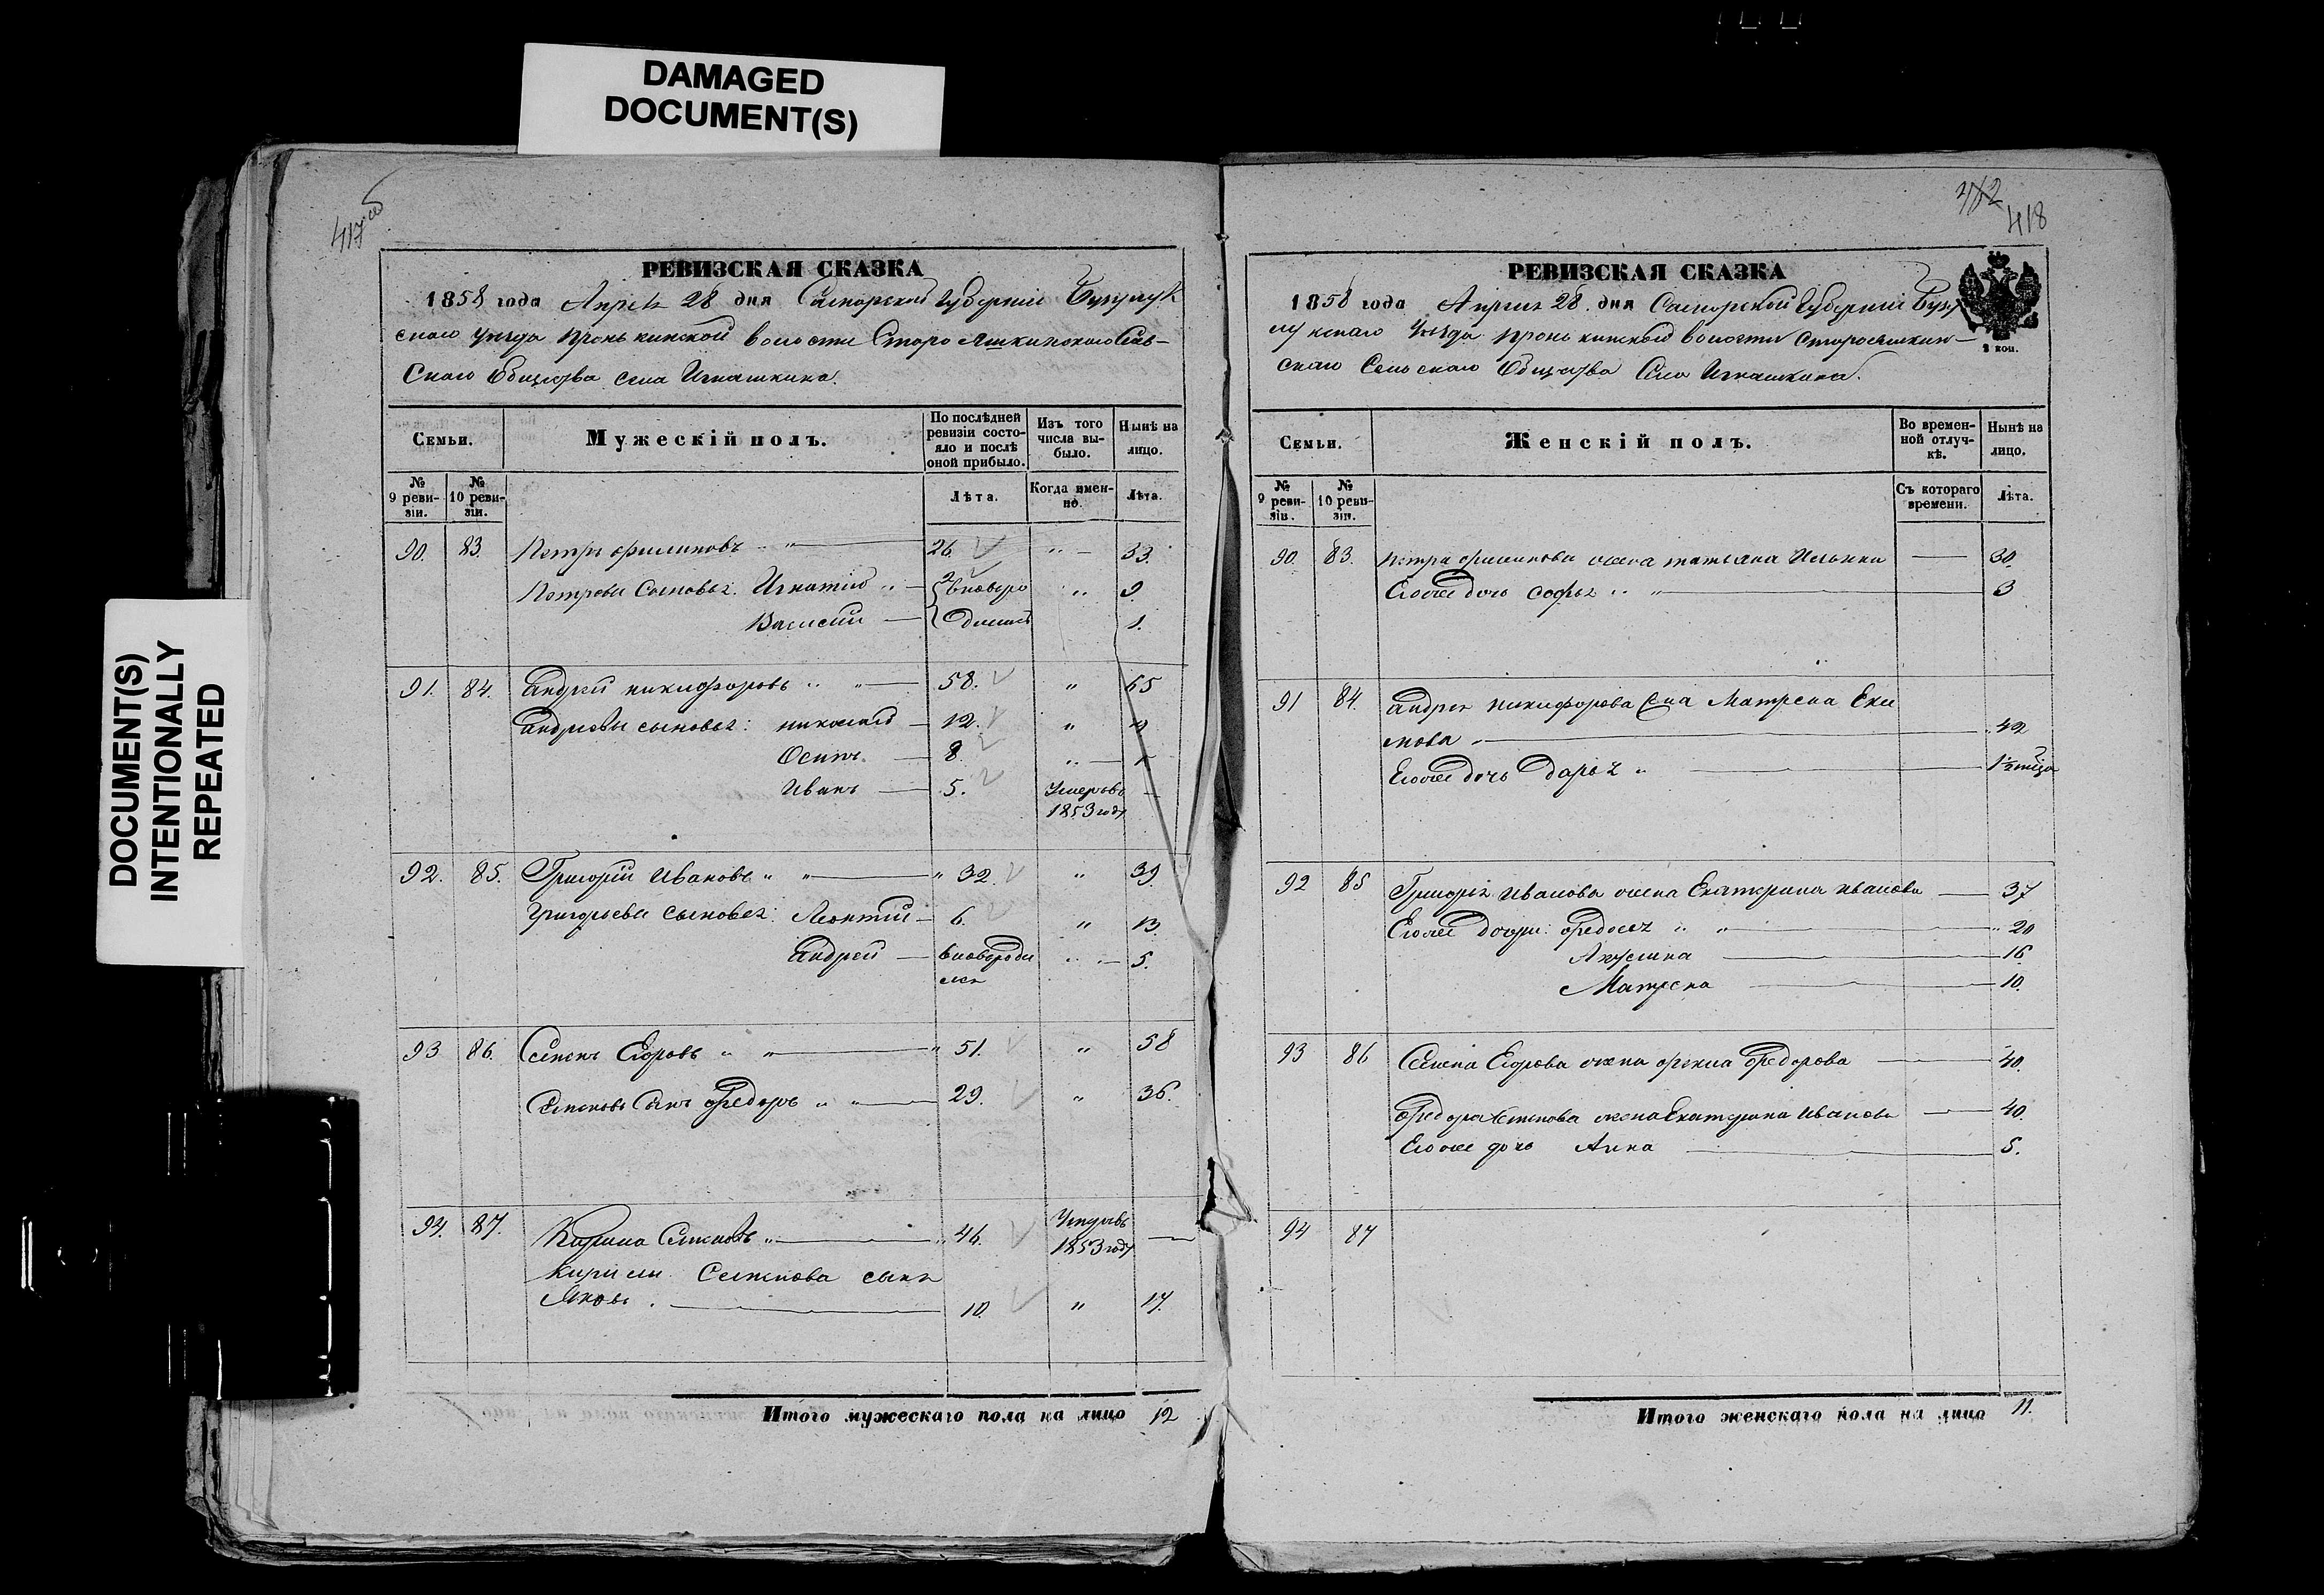 DAMAGED
DOCUMENT(S)
DOCUMENT(S)
INTENTIONALLY
REPEATED
417 об
РЕВИЗСКАЯ СКАЗКА
1858 года Апреля 28 дня Самарской Губернии Бузулук
скаго уезда Пронькинской волости Старо Яшкинскаго Сель-
Скаго Общества села Игнашкина.
Семьи.
Мужескій полъ.
По послѣдней
ревизіи состо-
яло и послѣ
оной прибыло.
Изъ того
числа вы-
было.
Нынѣ на
лицо.
№
9 реви-
зіи.
№
10 реви-
зіи.
Лѣта.
Когда имен-
но.
Лѣта.
90. 83. Петръ Филиповъ 26 " 33.
Петровы Сыновья: Игнатий 2 вновьро " 9
Василий дились 1.
91. 84. Андрей никифоровъ 58. " 65
Андреевы сыновья: николай 12. "
Осипъ 8 "
Иванъ 5. Умеръ въ —
1853 году
92. 85. Григорий Ивановъ 32. " 39
Григорьевы сыновья: Леонтий 6. " 13.
Андрей вновьроди " 5.
лся
93 86. Семенъ Егоровъ 51. " 58
Семеновъ Сынъ Федоръ 29. " 36.
94. 87. Кирила Семеновъ 46. Умеръ въ —
1853 году
Кирилы Семенова сынъ
Яковъ 10. " 17.
Итого мужескаго пола на лицо 12
482
418
РЕВИЗСКАЯ СКАЗКА
1858 года Апреля 28 дня Самарской Губернии Бузу
лукскаго Уезда Пронькинской волости Старояшкин-
скаго Сельскаго Общества Села Игнашкина.
2 коп.
Семьи.
Женскій полъ.
Во времен-
ной отлуч-
кѣ.
Нынѣ на
лицо.
№
9 реви-
зіи.
№
10 реви-
зіи.
Съ котораго
времени.
Лѣта.
90. 83. Петра Филипова жена татьяна Ильина — 30.
Егоже дочь Софья 3
91 84. Андрея Никифорова жена Матрена Еки
мова 42
Егоже дочь Дарья 1½ месца
92 85 Григорья Иванова жена Екатерина иванова — 37
Егоже дочери: Федосья 20
Акулина 16
Матрена 10.
93 86 Семена Егорова жена Фекла Федорова 40.
Федора Семенова жена Екатерина Иванова — 40.
Егоже дочь Анна 5.
94 87
Итого женскаго пола на лицо 11.